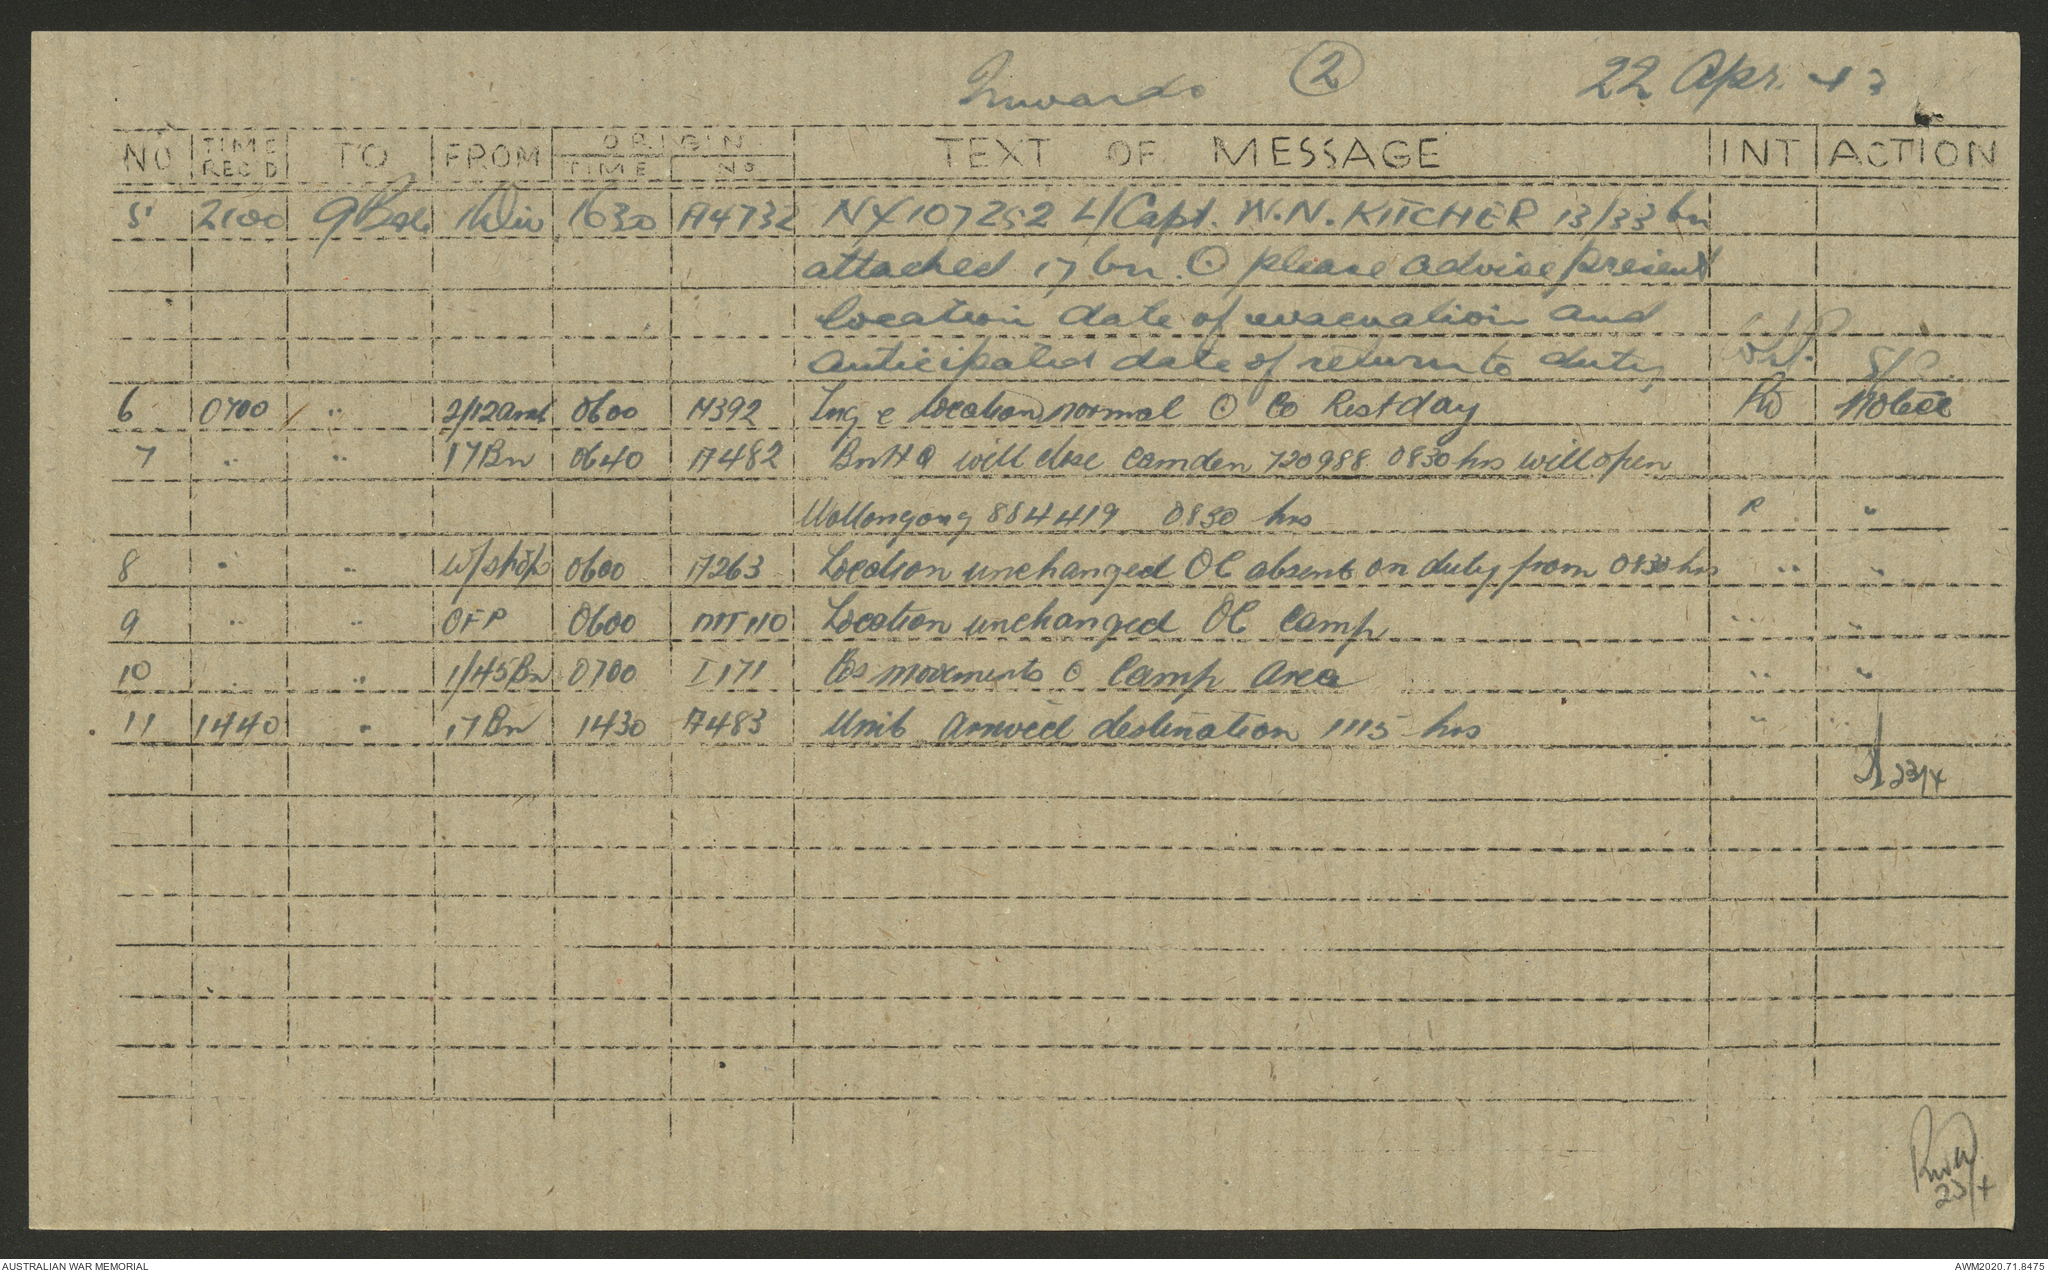 Inwards ② 22 Apr. 43
NO | TIME REC'D | TO | FROM | ORIGIN TIME | ORIGIN No | TEXT OF MESSAGE | INT | ACTION
5 2100 9 Bde 1 Div 1630 A4732 NX107252 L/Capt. W.N. KITCHER 13/33 bn
attached 17 bn. ⊙ please advise present
location date of evacuation and
anticipated date of return to duty S/C.
6 0700 " 2/12 amb 0600 M392 location normal ⊙ Co Rest day Notice
7 " " 17 Bn 0640 A482 Bn HQ will close Camden 720988 0830 hrs will open
Wollongong 884419 0830 hrs R "
8 " " W/shop 0600 A263 Location unchanged OC absent on duty from 0830 hrs " "
9 " " OFP 0600 MT110 Location unchanged OC Camp " "
10 " " 1/45 Bn 0700 I171 COs movements ⊙ Camp Area " "
11 1440 " 17 Bn 1430 A483 Unit arrived destination 1115 hrs " "
23/4
23/4
AUSTRALIAN WAR MEMORIAL AWM2020.71.8475